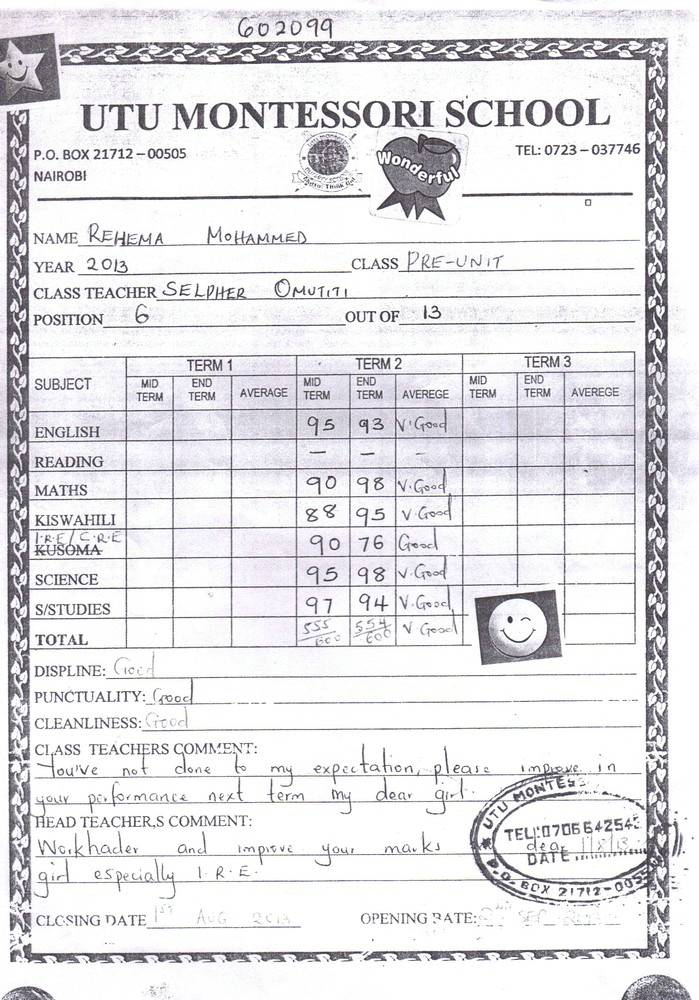 602099
UTU MONTESSORI SCHOOL
P.O. BOX 21712 – 00505
TEL: 0723 – 037746
NAIROBI
Wonderful
NAME REHEMA MOHAMMED
YEAR 2013 CLASS PRE-UNIT
CLASS TEACHER SELPHER OMUTITI
POSITION 6 OUT OF 13
SUBJECT TERM 1 TERM 2 TERM 3
MID TERM END TERM AVERAGE MID TERM END TERM AVEREGE MID TERM END TERM AVEREGE
ENGLISH 95 93 V.Good
READING – – –
MATHS 90 98 V.Good
KISWAHILI 88 95 V.Good
I.R.E/C.R.E
KUSOMA 90 76 Good
SCIENCE 95 98 V.Good
S/STUDIES 97 94 V.Good
TOTAL 555/600 554/600 V Good
DISPLINE: Good
PUNCTUALITY: Good
CLEANLINESS: Good
CLASS TEACHERS COMMENT:
You've not done to my expectation, please improve in
your performance next term my dear girl.
HEAD TEACHER,S COMMENT:
Workhader and improve your marks dear
girl especially I.R.E.
UTU MONTESS
TEL:0706642543
DATE 1/8/13
P.O. BOX 21712-005
CLOSING DATE 1st AUG 2013 OPENING DATE: SEP